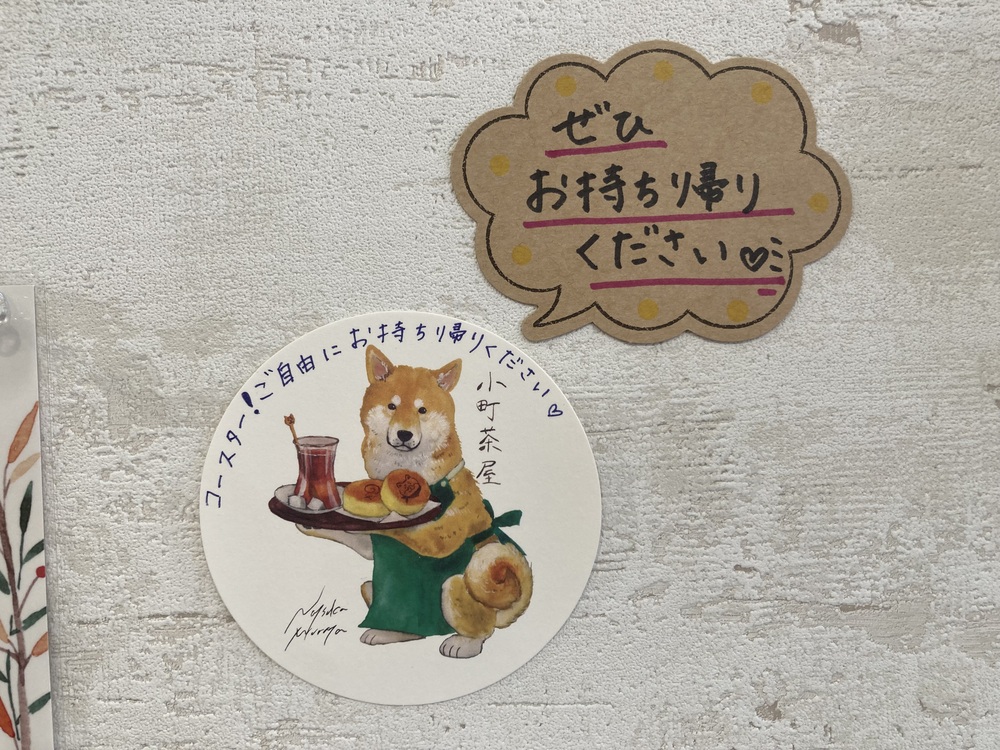 ぜひ
お持ち帰り
ください♡
コースター!ご自由にお持ち帰りください♡
小町茶屋